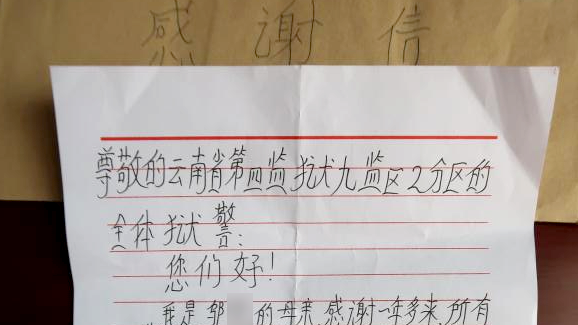 感谢信
尊敬的云南省第四监狱九监区2分区的
全体狱警:
您们好!
我是邹 的母亲,感谢一年多来,所有